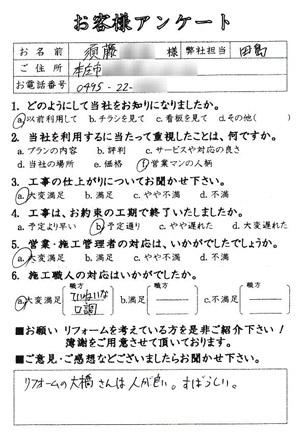 お客様アンケート
お名前 須藤 様 弊社担当 田島
ご住所 本庄市
お電話番号 0495-22-
1. どのようにして当社をお知りになりましたか。
a.以前利用して b.チラシを見て c.看板を見て d.その他( )
2. 当社を利用するに当たって重視したことは、何ですか。
a.プランの内容 b.評判 c.サービスや対応の良さ
d.当社の場所 e.価格 f.営業マンの人柄
3. 工事の仕上がりについてお聞かせ下さい。
a.大変満足 b.満足 c.やや不満 d.不満
4. 工事は、お約束の工期で終了いたしましたか。
a.予定より早い b.予定通り c.やや遅れた d.大変遅れた
5. 営業・施工管理者の対応は、いかがでしたでしょうか。
a.大変満足 b.満足 c.やや不満 d.不満
6. 施工職人の対応はいかがでしたか。
a.大変満足 職方 ていねいな口調 b.満足 職方 c.不満足 職方
■お願い リフォームを考えている方を是非ご紹介下さい!
薄謝をご用意させて頂いております。
■ご意見・ご感想などございましたらお聞かせ下さい。
リフォームの大橋さんは人が良い。すばらしい。